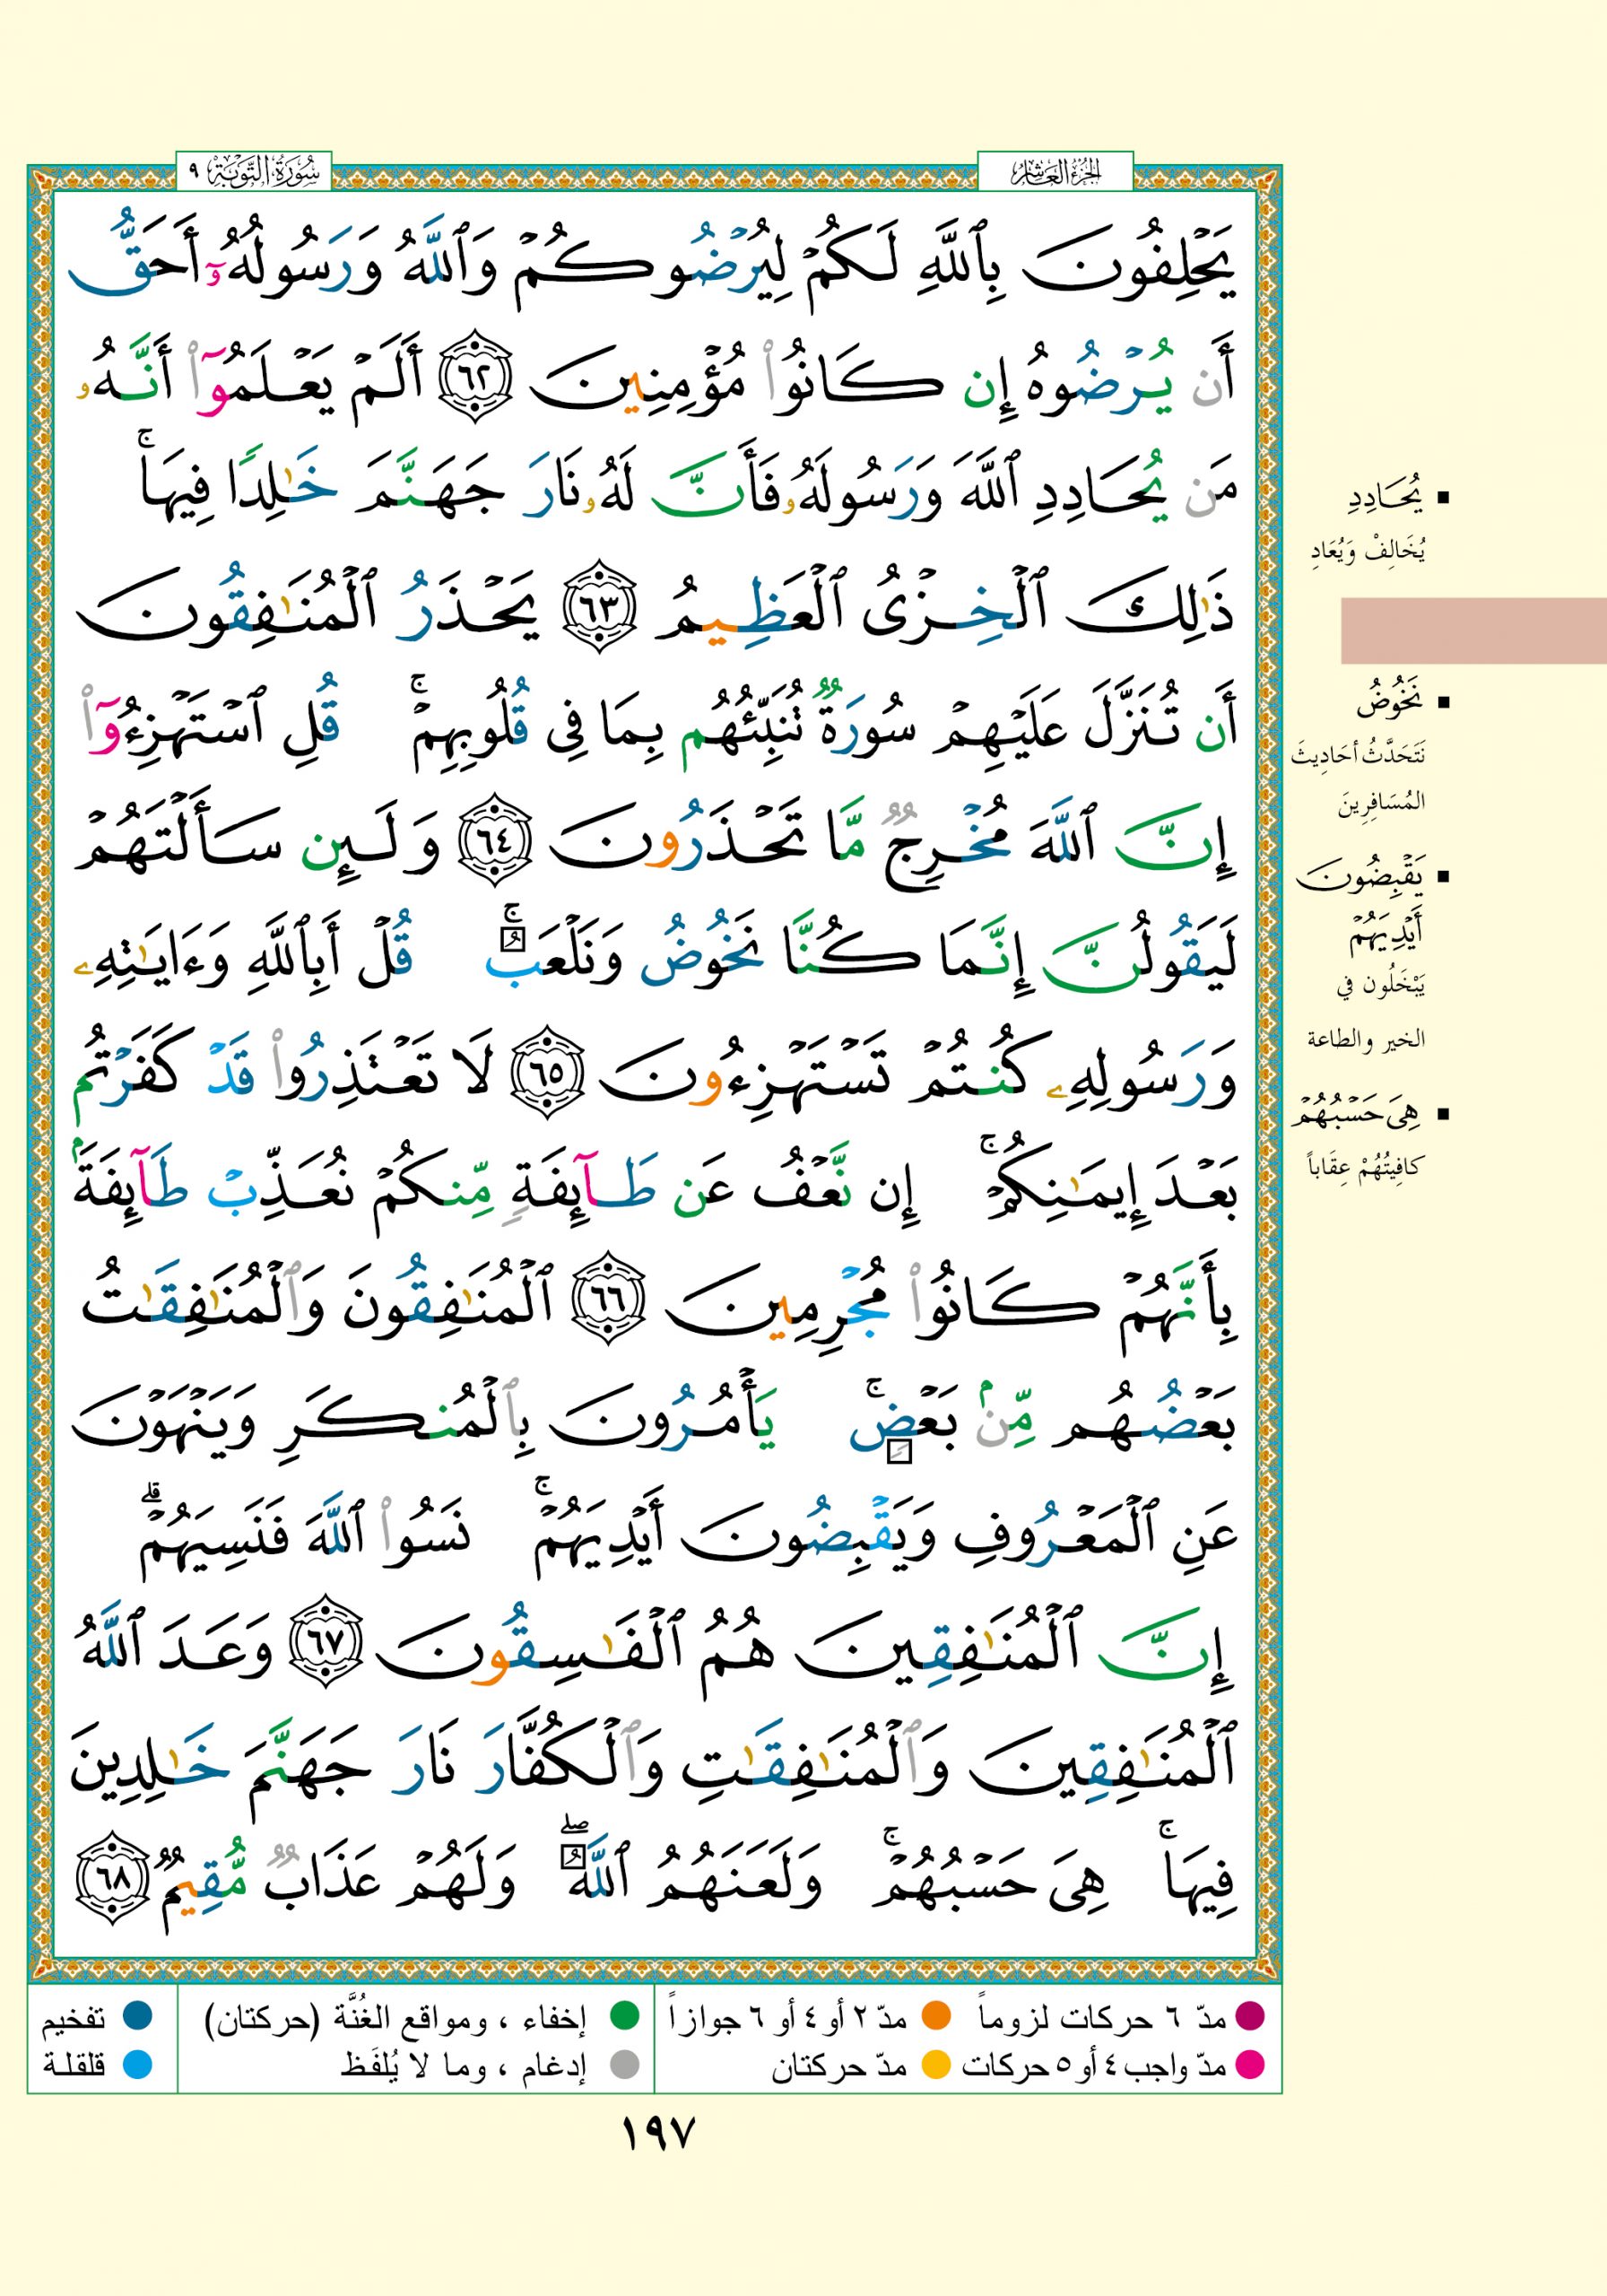 الجزء العاشر
سورة التوبة ٩
يَحْلِفُونَ بِٱللَّهِ لَكُمْ لِيُرْضُوكُمْ وَٱللَّهُ وَرَسُولُهُۥٓ أَحَقُّ
أَن يُرْضُوهُ إِن كَانُوا۟ مُؤْمِنِينَ ٦٢ أَلَمْ يَعْلَمُوٓا۟ أَنَّهُۥ
مَن يُحَادِدِ ٱللَّهَ وَرَسُولَهُۥ فَأَنَّ لَهُۥ نَارَ جَهَنَّمَ خَـٰلِدًا فِيهَا ۚ
ذَٰلِكَ ٱلْخِزْىُ ٱلْعَظِيمُ ٦٣ يَحْذَرُ ٱلْمُنَـٰفِقُونَ
أَن تُنَزَّلَ عَلَيْهِمْ سُورَةٌ تُنَبِّئُهُم بِمَا فِى قُلُوبِهِمْ ۚ قُلِ ٱسْتَهْزِءُوٓا۟
إِنَّ ٱللَّهَ مُخْرِجٌ مَّا تَحْذَرُونَ ٦٤ وَلَئِن سَأَلْتَهُمْ
لَيَقُولُنَّ إِنَّمَا كُنَّا نَخُوضُ وَنَلْعَبُ ۚ قُلْ أَبِٱللَّهِ وَءَايَـٰتِهِۦ
وَرَسُولِهِۦ كُنتُمْ تَسْتَهْزِءُونَ ٦٥ لَا تَعْتَذِرُوا۟ قَدْ كَفَرْتُم
بَعْدَ إِيمَـٰنِكُمْ ۚ إِن نَّعْفُ عَن طَآئِفَةٍ مِّنكُمْ نُعَذِّبْ طَآئِفَةًۢ
بِأَنَّهُمْ كَانُوا۟ مُجْرِمِينَ ٦٦ ٱلْمُنَـٰفِقُونَ وَٱلْمُنَـٰفِقَـٰتُ
بَعْضُهُم مِّنۢ بَعْضٍ ۚ يَأْمُرُونَ بِٱلْمُنكَرِ وَيَنْهَوْنَ
عَنِ ٱلْمَعْرُوفِ وَيَقْبِضُونَ أَيْدِيَهُمْ ۚ نَسُوا۟ ٱللَّهَ فَنَسِيَهُمْ ۗ
إِنَّ ٱلْمُنَـٰفِقِينَ هُمُ ٱلْفَـٰسِقُونَ ٦٧ وَعَدَ ٱللَّهُ
ٱلْمُنَـٰفِقِينَ وَٱلْمُنَـٰفِقَـٰتِ وَٱلْكُفَّارَ نَارَ جَهَنَّمَ خَـٰلِدِينَ
فِيهَا ۚ هِىَ حَسْبُهُمْ ۚ وَلَعَنَهُمُ ٱللَّهُ ۖ وَلَهُمْ عَذَابٌ مُّقِيمٌ ٦٨
▪ يُحَادِدِ
يُخَالِفْ وَيُعَادِ
▪ نَخُوضُ
نَتَحَدَّثُ أحَادِيثَ
المُسَافِرِينَ
▪ يَقْبِضُونَ
أَيْدِيَهُمْ
يَبْخَلُون في
الخير والطاعة
▪ هِىَ حَسْبُهُمْ
كافِيتُهُمْ عِقَاباً
مدّ ٦ حركات لزوماً
مدّ ٢ أو ٤ أو ٦ جوازاً
مدّ واجب ٤ أو ٥ حركات
مدّ حركتان
إخفاء ، ومواقع الغُنَّة (حركتان)
إدغام ، وما لا يُلفَظ
تفخيم
قلقلة
١٩٧